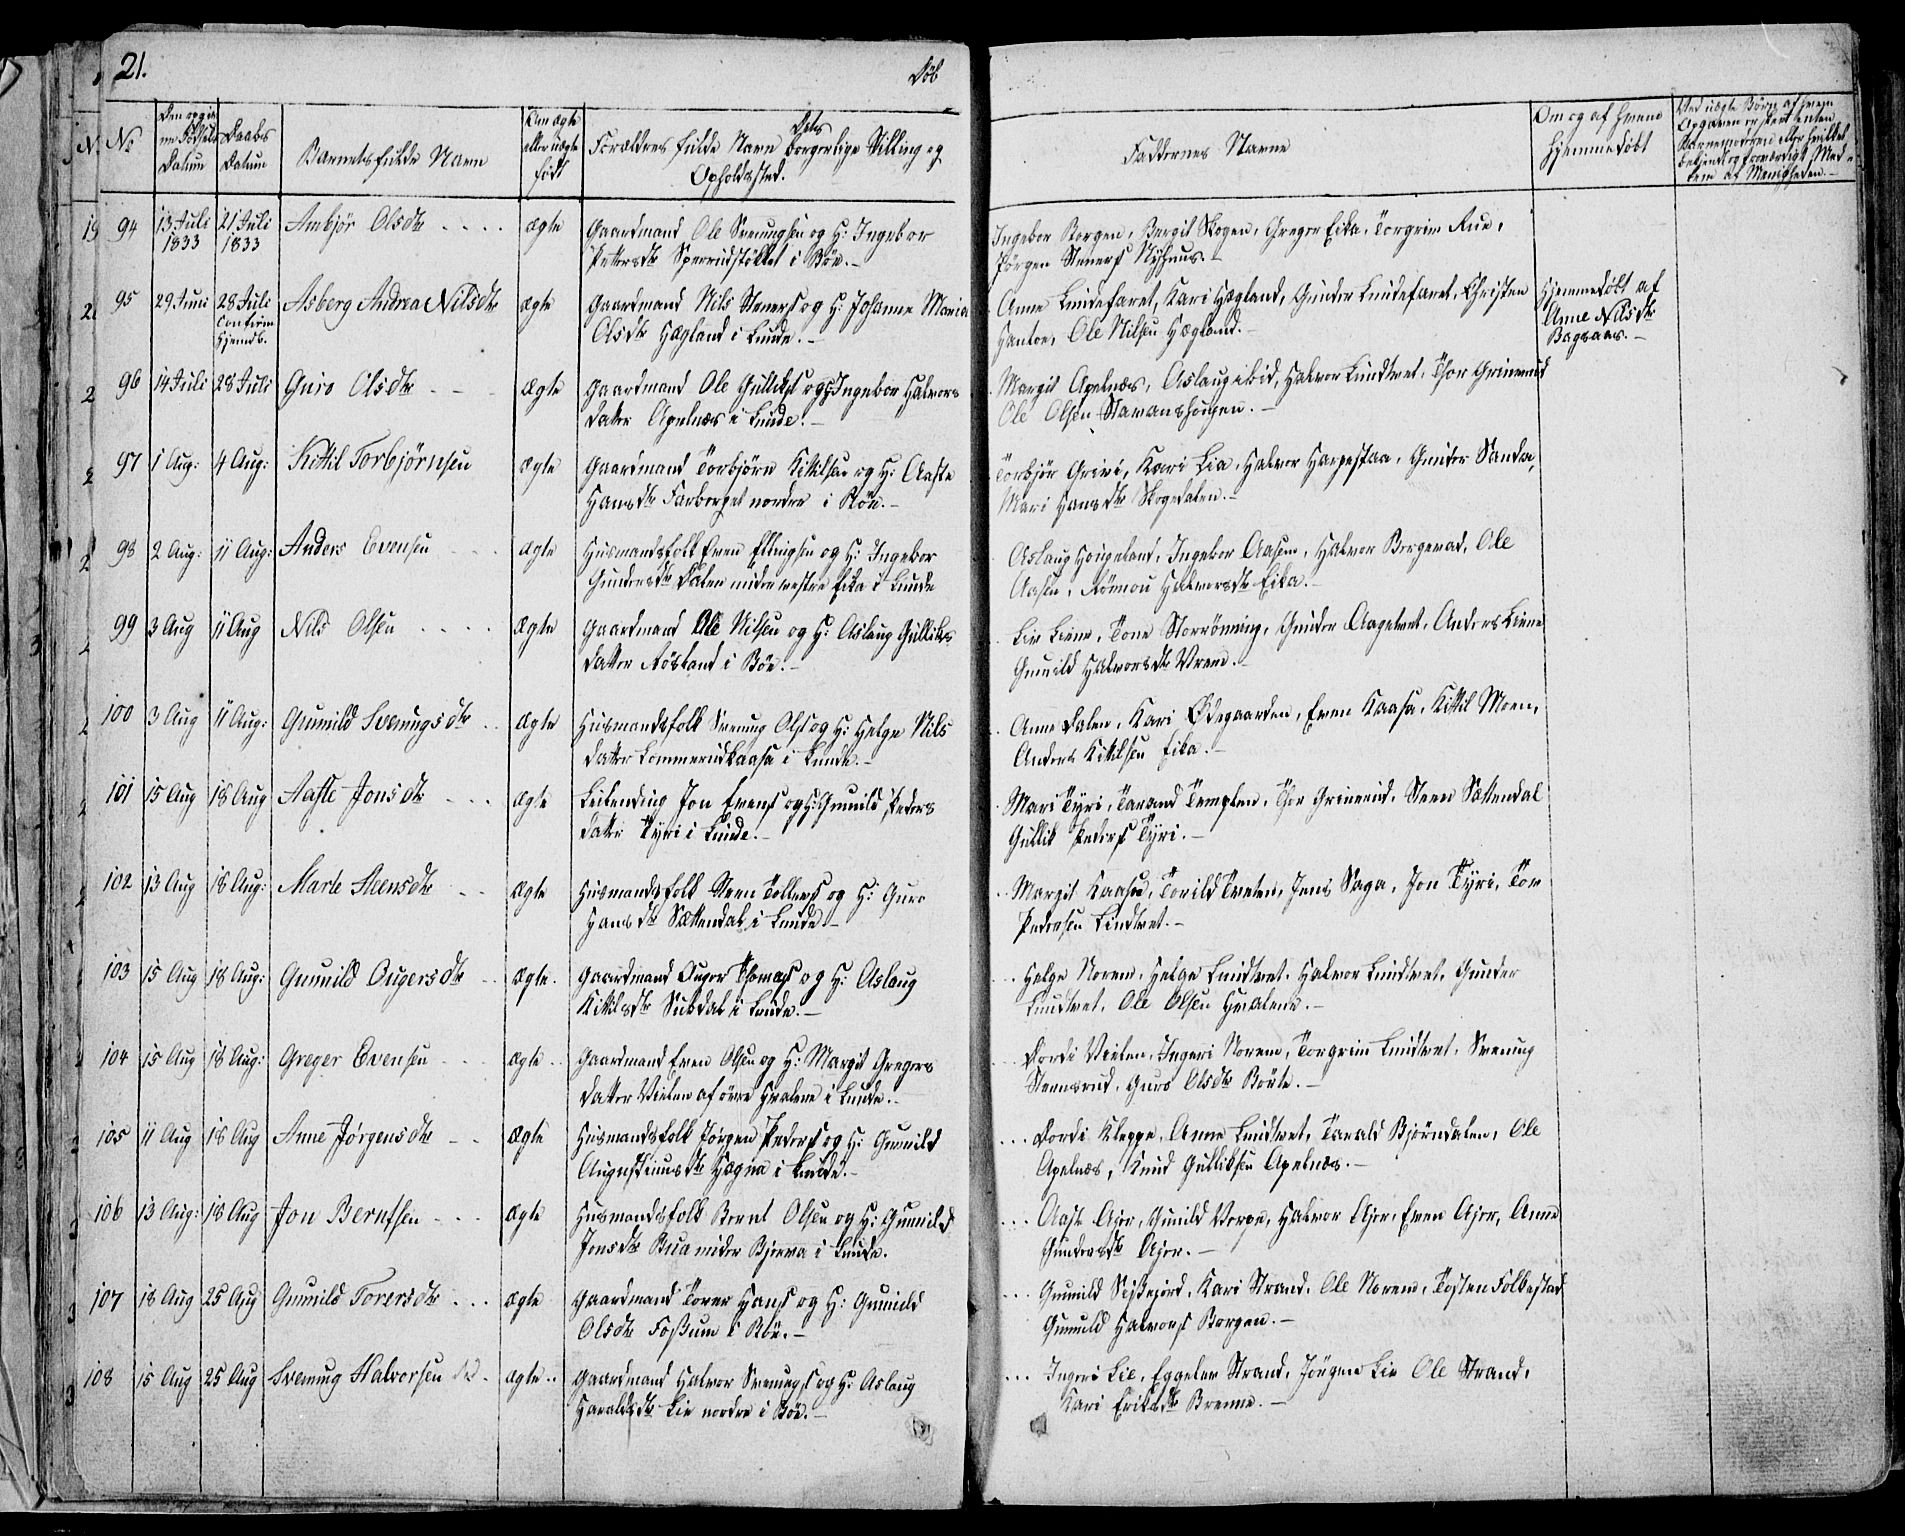 21.
Døb
No
Den opgiv-
ne Fødsels
Datum
Daabs
Datum
Barnets fulde Navn
Om ægte
eller uægte
født
Forældres fulde Navn Dets borgerlige Stilling og
Opholdssted.
Faddernes Navne
Om og af hvem
hjemmedøbt
94 13 Juli 1833 21 Juli 1833 Ambjør Olsdtr ægte Gaardmand Ole Sveningsen og H: Ingebor
Pettersdtr Sperrudstøkket i Bøe.-
Ingebor Borgen, Bergit Skogen, Gregor Eika, Torgrim Rue,
Jørgen Steners Nyhuus.-
95 29 Juni 28 Juli Confirm Hjemdb. Asberg Andrea Nilsdtr ægte Gaardmand Nils Steners og H: Johanne Maria
Olsdtr Hægland i Lunde.-
Anne Lindefaret, Kari Hægland, Gunder Lindefaret, Christen
Hantoe, Ole Nilsen Hægland.-
Hjemmedøbt af
Anne Nilsdtr
Bagaas.-
96 14 Juli 28 Juli Guro Olsdtr ægte Gaardmand Ole Gulliks og H: Ingebor Halvors
datter Apelnæs i Lunde.-
Margit Apelnæs, Aslaug ibid, Halvor Lindtvet, Thor Grinerud
Ole Olsen Stavanshougen.-
97 1 Aug: 4 Aug: Kittil Torbjørnsen ægte Gaardmand Torbjørn Kittilsen og H: Aaste
Hansdtr Forberget nordre i Bøe.-
Torbjør Grivi, Kari Lia, Halvor Harpestaa, Gunder Sanda,
Mari Hansdtr Skogedalen.-
98 2 Aug: 11 Aug: Anders Evensen ægte Husmandsfolk Even Ellingsen og H: Ingebor
Gundersdtr Dalen under vestre Eika i Lunde
Aslaug Hougeland, Ingebor Aasen, Halvor Bergerad, Ole
Aasen, Rønnou Halvorsdtr Eika.-
99 3 Aug 11 Aug Nils Olsen ægte Gaardmand Ole Nilsen og H: Aslaug Gulliks
datter Røsland i Bøe.-
Liv Liene, Tone Storrønning, Gunder Aagetvet, Anders Liene
Gunild Halvorsdtr Vreim.-
100 3 Aug 11 Aug: Gunnild Sveningsdtr ægte Husmandsfolk Svening Ols og H: Helge Nils
datter Lommerudkaasa i Lunde.-
Anne Dalen, Kari Ødegaarden, Even Kaasa, Kittil Moen,
Anders Kittilsen Eika.-
101 15 Aug 18 Aug Aaste Jonsdtr ægte Leilending Jon Evens og H: Gunild Peders
datter Tyri i Lunde.-
Mari Tyri, Tarand Templen, Thor Grinerud, Steen Sættendal
Gullik Peders Tyri.-
102 13 Aug 18 Aug: Marte Steensdtr ægte Husmandsfolk Steen Tollefs og H: Guro
Hansdtr Sættendal i Lunde.-
Margit Kaasen, Torild Tveten, Jens Saga, Jon Tyri, Tor
Pedersen Lindtvet.-
103 15 Aug 18 Aug: Gunnild Ougersdtr ægte Gaardmand Ouger Thomas og H: Aslaug
Kittilsdtr Sukdal i Lunde.-
Helge Norem, Helge Lindtvet, Halvor Lindtvet, Gunder
Lindtvet, Ole Olsen Hvalene.-
104 15 Aug 18 Aug: Greger Evensen ægte Gaardmand Even Olsen og H: Margit Gregers
datter Vielen af øvre Hvalene i Lunde.-
Dordi Vielen, Ingeri Norem, Torgrim Lindtvet, Svening
Steensrud, Guro Olsdtr Børte.-
105 11 Aug 18 Aug Anne Jørgensdtr ægte Husmandsfolk Jørgen Peders og H: Gunnild
Augustinusdtr Hægna i Lunde.-
Dordi Kleppe, Anne Lindtvet, Tarald Bjørndalen, Ole
Apelnæs, Knud Gulliksen Apelnæs.-
106 13 Aug: 18 Aug Jon Berntsen ægte Husmandsfolk Bernt Olsen og H: Gunnild
Jonsdtr Bua under Bjerva i Lunde.
Aaste Ajer, Gunild Vorpe, Halvor Ajer, Even Ajer, Anne
Gundersdtr Ajer.-
107 18 Aug 25 Aug Gunnild Torersdtr ægte Gaardmand Torer Hans og H: Gunild
Olsdtr Foßum i Bøe.-
Gunild Sißejord, Kari Strand, Ole Norem, Tosten Folkestad
Gunild Halvors Borgen.-
108 15 Aug 25 Aug Svenung Halvorsen ægte Gaardmand Halvor Svenings og H: Aslaug
Haraldsdtr Lie nordre i Bøe.-
Ingeri Lie, Eggeler Strand, Jørgen Lie Ole Strand,
Kari Eriksdtr Brenne.-